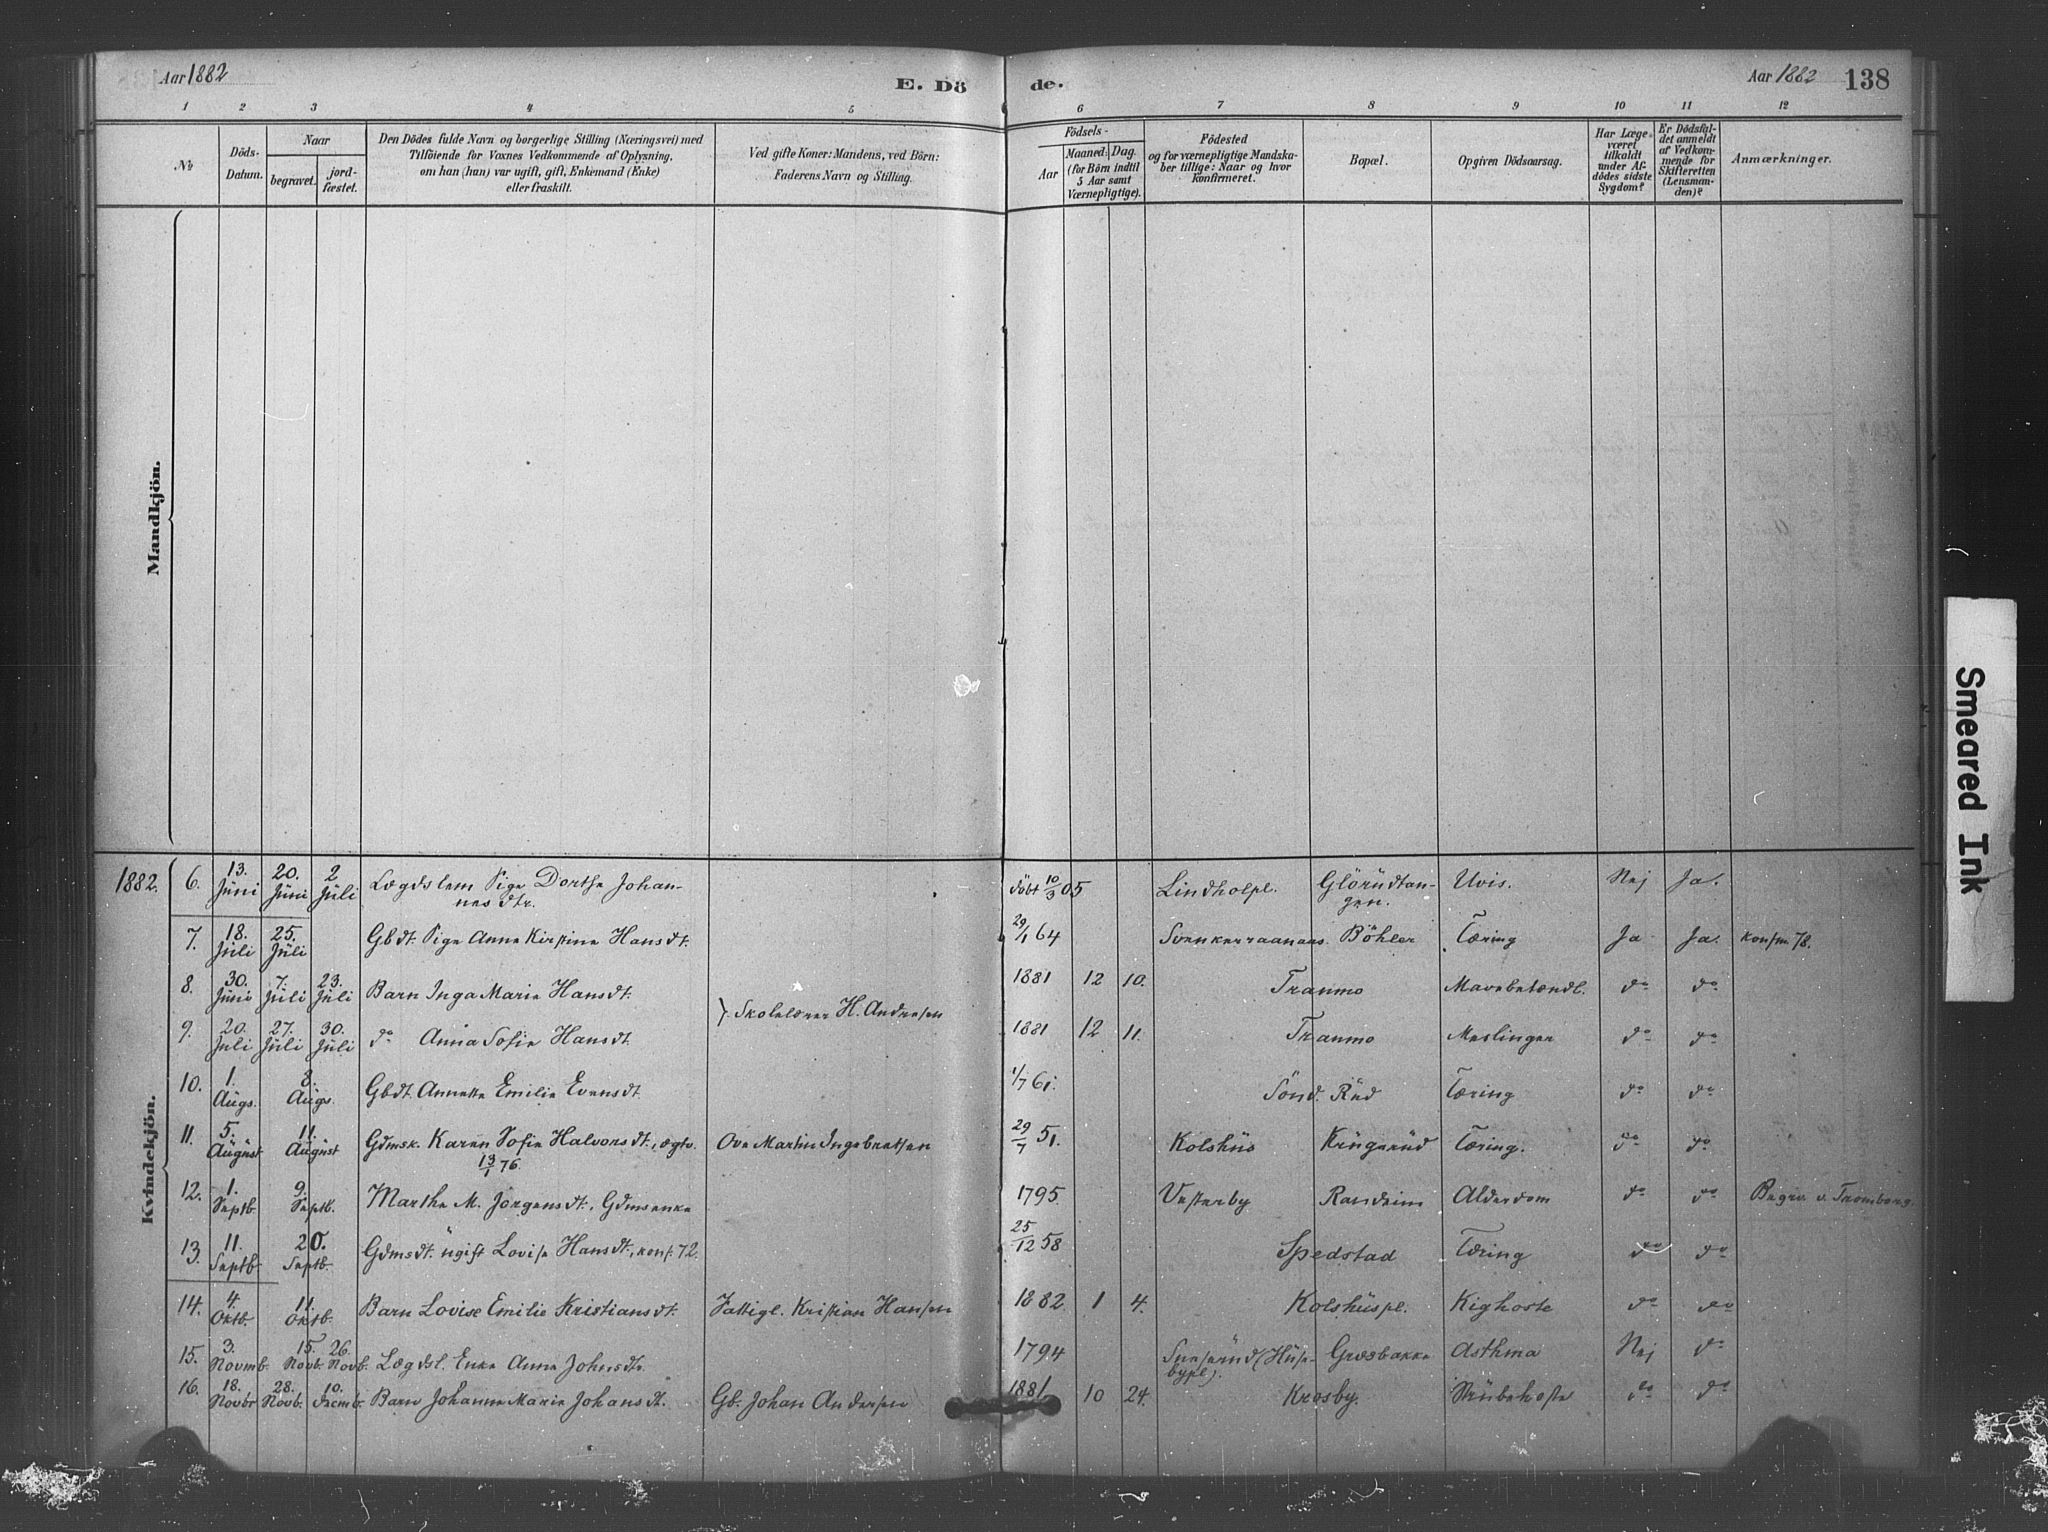 Aar 1882
E. Dö
de.
Aar 1882
138
1 2 3 4 5 6 7 8 9 10 11 12
No
Döds-Datum.
Naar
begravet.
jord-fæstet.
Den Dödes fulde Navn og borgerlige Stilling (Næringsvei) med
Tilföiende for Voxnes Vedkommende af Oplysning,
om han (hun) var ugift, gift, Enkemand (Enke)
eller fraskilt.
Ved gifte Koner: Mandens, ved Börn:
Faderens Navn og Stilling.
Födsels-
Aar
Maaned. Dag.
(for Börn indtil
5 Aar samt
Værnepligtige).
Födested
og for værnepligtige Mandska-
ber tillige: Naar og hvor
konfirmeret.
Bopæl.
Opgiven Dödsaarsag.
Har Læge
været
tilkaldt
under Af-
dödes sidste
Sygdom?
Er Dödsfal-
det anmeldt
af Vedkom-
mende for
Skifteretten
(Lensman-
den)?
Anmærkninger.
Mandkjön.
Kvindekjön.
1882. 6. 13. Juni 20. Juni 2 Juli Lægdslem Pige Dorthe Johan-
nesdtr. Döbt 10/3 05 Lindholpl. Glörudtan-
gen. Uvis. Nej Ja.
7. 18. Juli 25. Juli Gbdt. Pige Anne Kirstine Hansdt. 29/1 64 Böhler Tæring Ja Ja. konfm. 78.
8. 30. Juni 7. Juli 23. Juli Barn Inga Marie Hansdt. 1881 12 10. Tranmo Mavebetændl. do do
} Skolelærer H. Andresen
9. 20. Juli 27. Juli 30. Juli do Anna Sofie Hansdt. 1881 12 11. Tranmo Meslinger do do
10. 1. Augs. 8. Augs. Gbdt. Annette Emilie Evensdt. 1/7 61. Sönd. Rud Tæring do do
11. 5. August 11. August Gdmsk. Karen Sofie Halvorsdt., ægtv.
13/1 76. Ove Martin Ingebretsen 29/7 51. Kolshus Krugerud Tæring. do do
12. 1. Septb. 9. Septb. Marthe M. Jörgensdt., Gdmsenke 1795. Vesterby Randeim Alderdom do do Begra. v. Tromborg.
13. 11. Septb. 20. Septb. Gdmsdt. ugift Lovise Hansdt., konf. 72. 25/12 58 Spedstad Tæring do do
14. 4. Oktb. 11. Oktb. Barn Lovise Emilie Kristiansdt. Fattigl. Kristian Hansen 1882. 1 4. Kolshuspl. Kighoste do do
15. 3. Novmb. 15. Novb. 26. Novb. Lægdsl. Enke Anne Johnsdtr. 1794 (Huse-
bypl). Græsbakke Asthma Nej do
16. 18. Novbr 28. Novb. 10. Decmb. Barn Johanne Marie Johansdt. Gb. Johan Andersen 1881 10 24. Krosby. Strubehoste do do
Smeared Ink